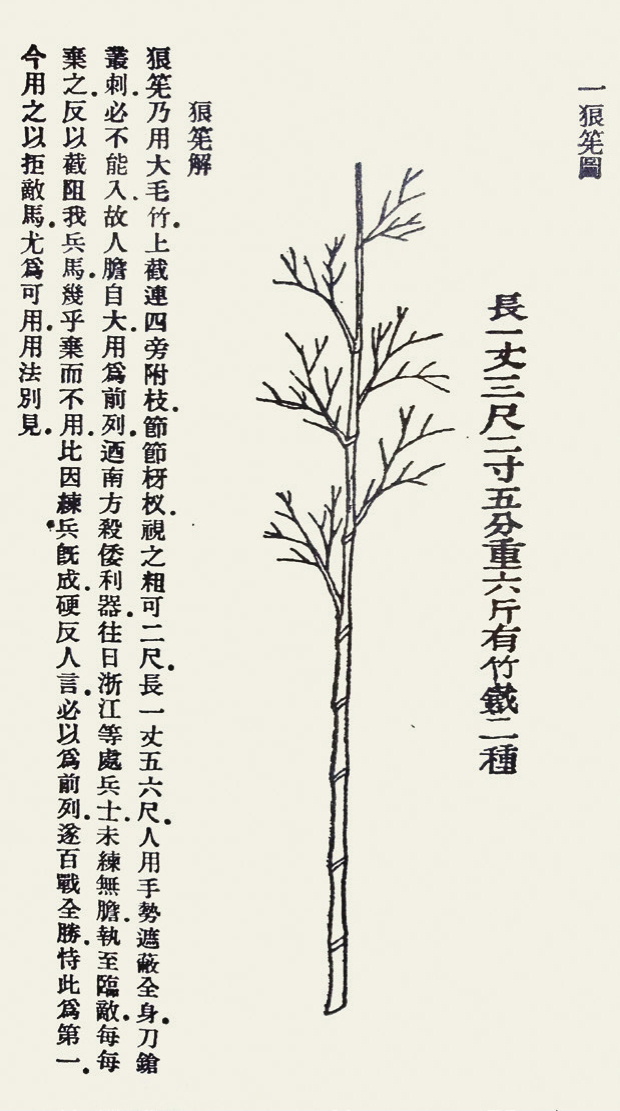 一狼筅圖
長一丈三尺二寸五分重六斤有竹鐵二種
狼筅解
狼筅乃用大毛竹上截連四旁附枝節節枒杈視之粗可二尺長一丈五六尺人用手勢遮蔽全身刀鎗
叢刺必不能入故人膽自大用爲前列迺南方殺倭利器往日浙江等處兵士未練無膽執至臨敵每每
棄之反以截阻我兵馬幾乎棄而不用比因練兵旣成硬反人言必以爲前列遂百戰全勝恃此爲第一
今用之以拒敵馬尤爲可用用法別見